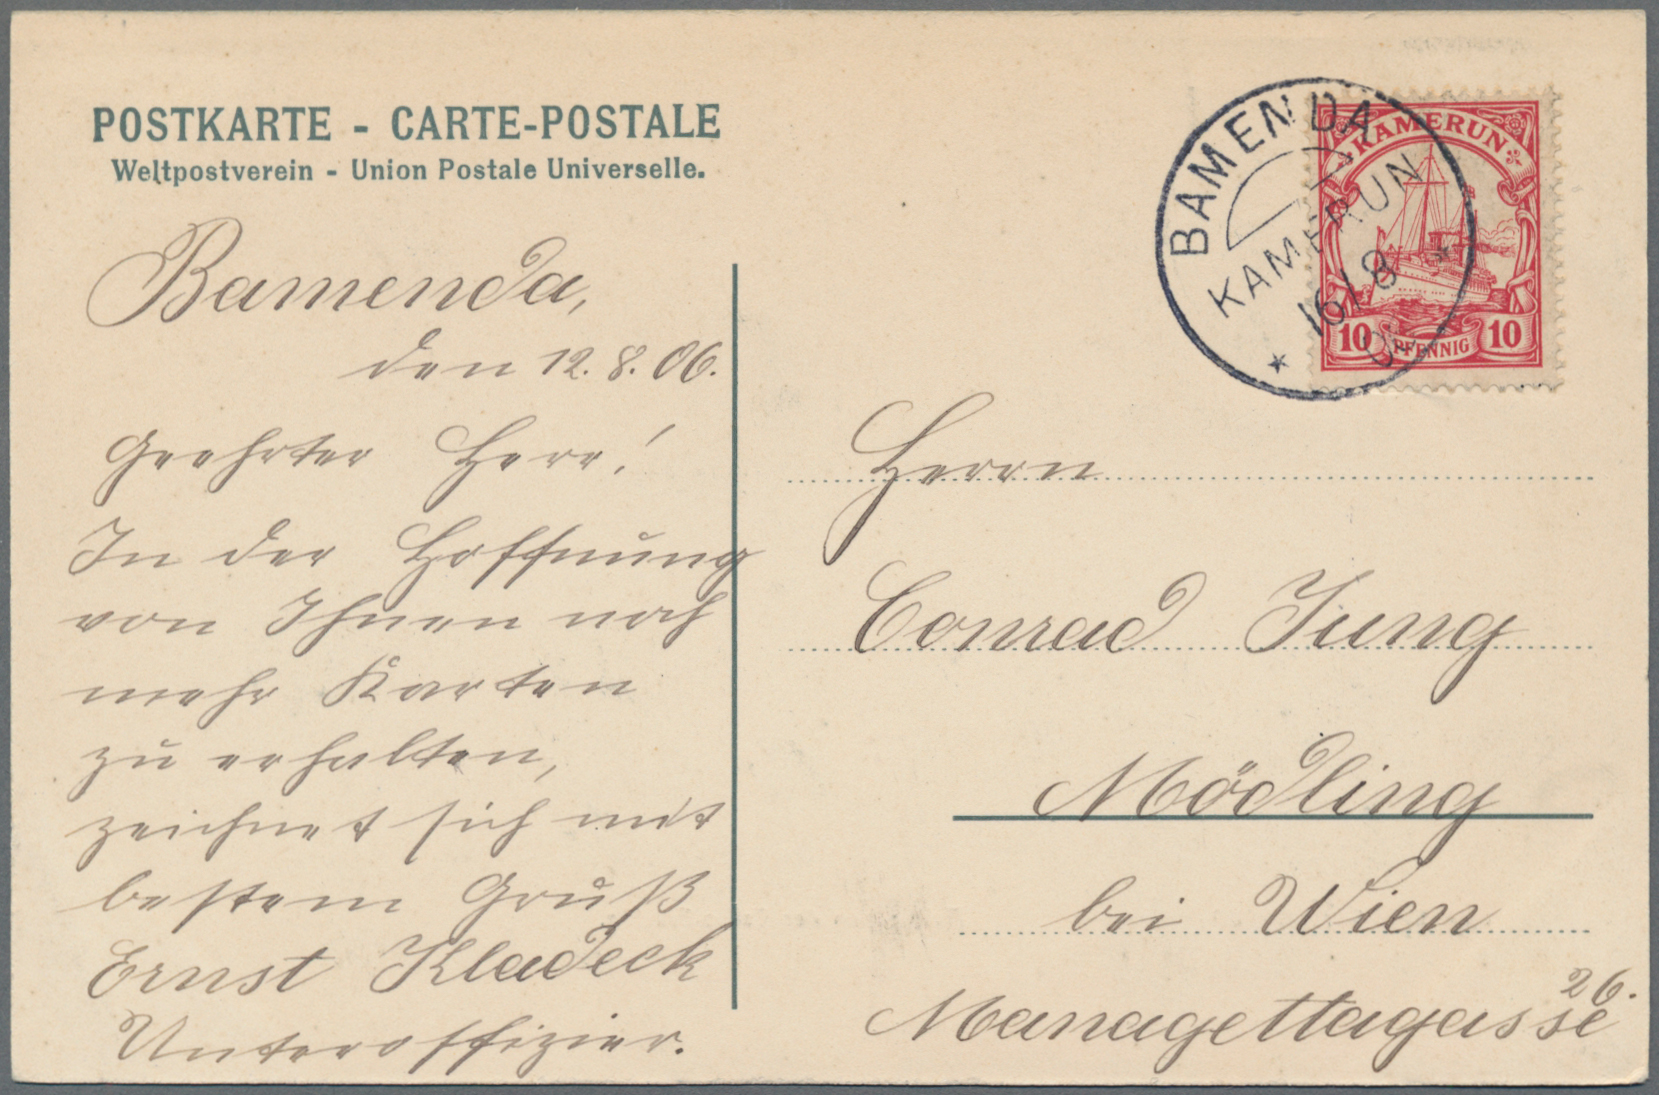 POSTKARTE - CARTE-POSTALE
Weltpostverein - Union Postale Universelle.
Bamenda,
den 12. 8. 06.
Geehrter Herr!
In der Hoffnung
von Ihnen noch
mehr Karten
zu erhalten,
zeichnet sich mit
bestem Gruß
Ernst Kladeck
Unteroffizier.
BAMENDA
KAMERUN
16/8
KAMERUN
10 PFENNIG 10
Herrn
Conrad Jung
Mödling
bei Wien
26.
Managettagasse